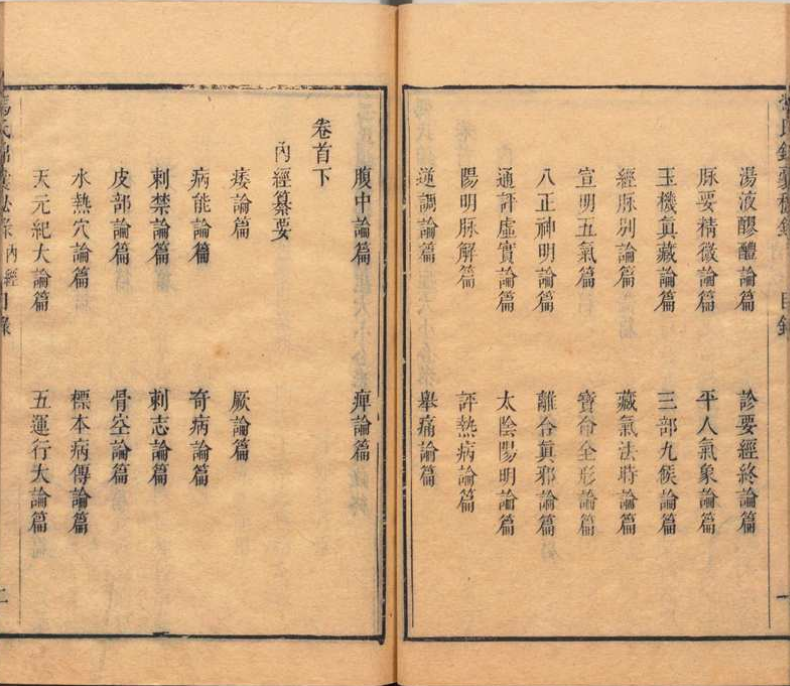 湯液醪醴論篇 診要經終論篇
脉要精微論篇 平人氣象論篇
玉機眞藏論篇 三部九候論篇
經脉別論篇 藏氣法時論篇
宣明五氣篇 寶命全形論篇
八正神明論篇 離合眞邪論篇
通評虛實論篇 太陰陽明論篇
陽明脉解篇 評熱病論篇
逆調論篇 舉痛論篇
腹中論篇 痺論篇
卷首下
內經纂要
痿論篇 厥論篇
病能論篇 奇病論篇
刺禁論篇 刺志論篇
皮部論篇 骨空論篇
水熱穴論篇 標本病傳論篇
天元紀大論篇 五運行大論篇
馮氏錦囊秘录 內經 目錄 二